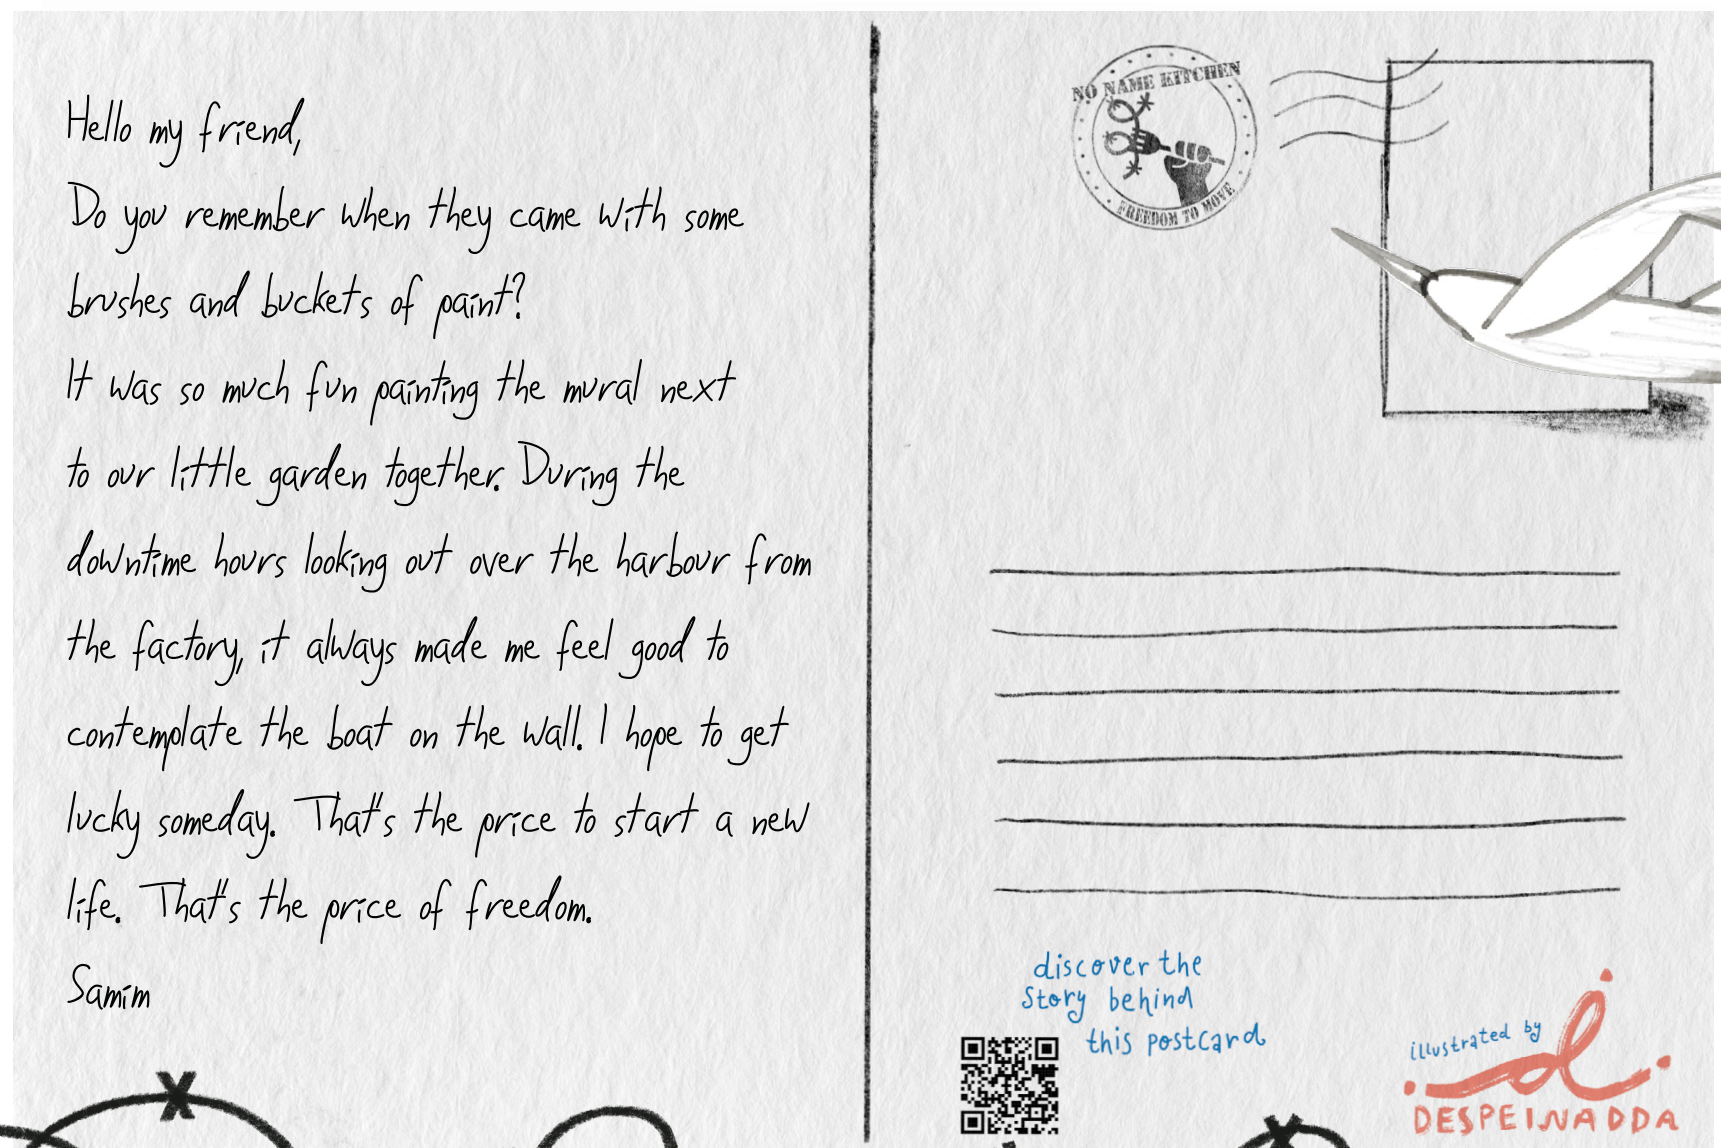 Hello my friend,
Do you remember when they came with some
brushes and buckets of paint?
It was so much fun painting the mural next
to our little garden together. During the
downtime hours looking out over the harbour from
the factory, it always made me feel good to
contemplate the boat on the wall. I hope to get
lucky someday. That's the price to start a new
life. That's the price of freedom.
Samim
NO NAME KITCHEN
FREEDOM TO MOVE
discover the
story behind
this postcard
illustrated by
d
DESPEINADDA